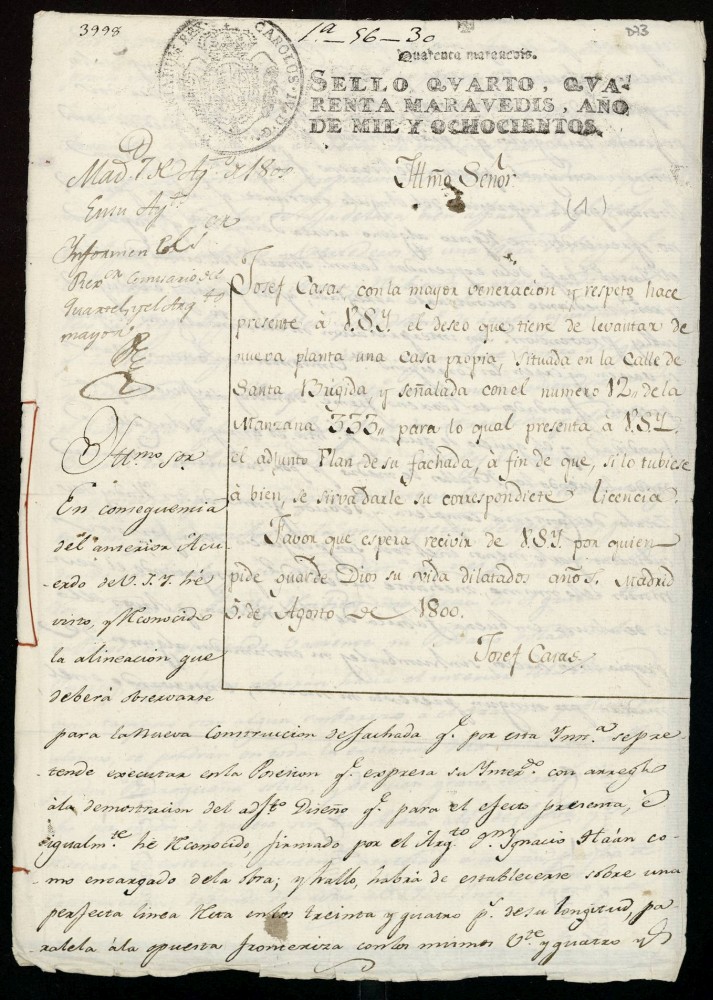 3998
1.ª-56-30
D73
CAROLUS IV D. G.
Quarenta maravedis.
SELLO QVARTO, QVA-
RENTA MARAVEDIS, AÑO
DE MIL Y OCHOCIENTOS.
Mad.d 7 de Ag.to de 1800
En su Ay.to
Informen el S.or
Rex.or Comisario del
Quartel y el Arq.to
mayor
Yllmo Señor
(1)
Josef Casas, con la mayor veneracion y respeto hace
presente à V.S.Y. el deseo que tiene de levantar de
nueva planta una casa propia, situada en la Calle de
Santa Brigida, y señalada con el numero 12,, de la
Manzana 333,, para lo qual presenta à V.S.Y.
el adjunto Plan de su fachada, à fin de que, si lo tubiese
à bien, se sirva darle su correspondiete licencia.
Favor que espera recivir de V.S.Y. por quien
pide guarde Dios su vida dilatados años. Madrid
5 de Agosto de 1800.
Josef Casas
Yll.mo sor
En conseguencia
del anterior Acu-
erdo de V.S.Y. hé
visto, y Reconocido
la alineacion que
deberà observarse
para la Nueva Construicion de fachada q.e por esta Inst.a se pre-
tende executar en la Posesion q.e expresa su Inter.do con arreglo
à la demostracion del adj.to Diseño q.e para el efecto presenta, è
igualm.te hè Reconocido, firmado por el Arq.to D.n Ygnacio Haàn co-
mo encargado de la Obra; y hallo, habrà de establecerse sobre una
perfecta linea Recta en los treinta y quatro p.s de su longitud, pa-
ralela à la opuesta fronteriza con los mismos